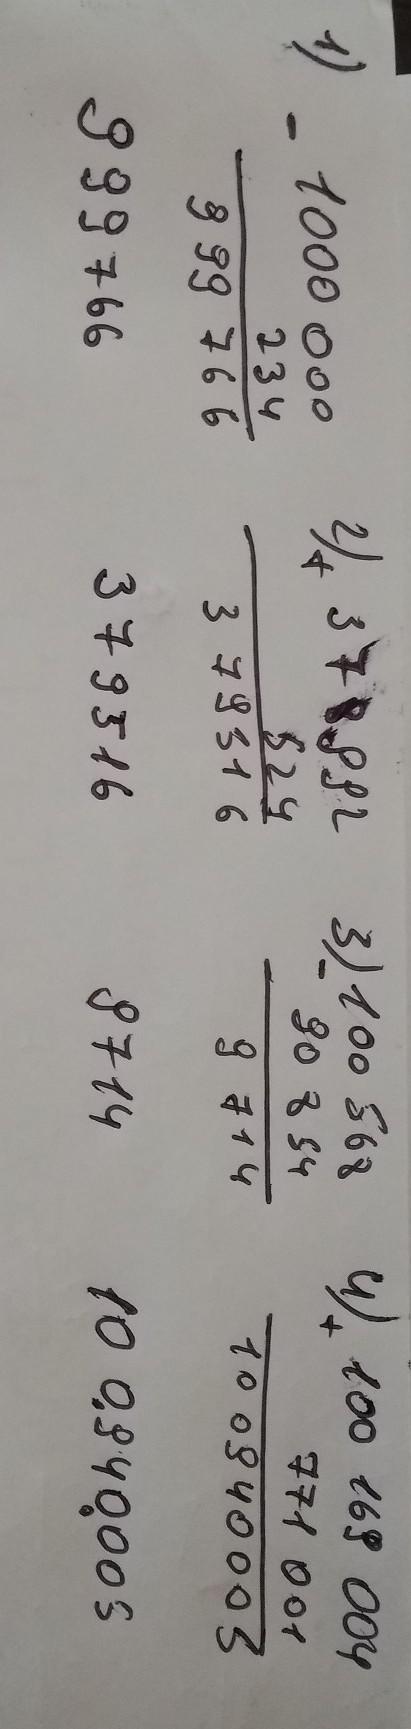 1) - 1000 000
234
999 766
999 766
2) + 378 992
524
3 79516
379516
3) - 100 568
90 854
9 714
9714
4) + 100 169 004
771 001
100940005
100.940.005